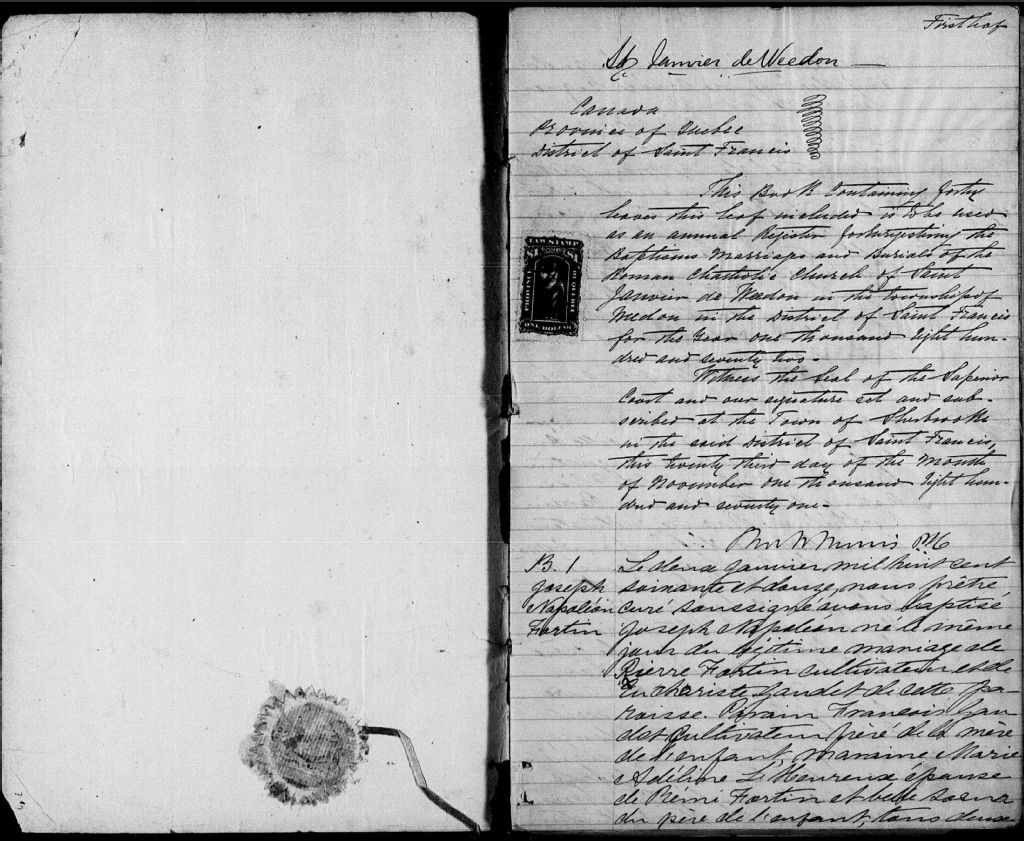 First leaf
St Janvier de Weedon
Canada
Province of Quebec
District of Saint Francis
This Book Containing forty
leaves this leaf included is to be used
as an annual Register for registering the
Baptisms Marriages and Burials of the
Roman Chatholic Church of Saint
Janvier de Weedon in the township of
Weedon in the District of Saint Francis
for the Year one thousand Eight hun-
dred and seventy two-
LAW STAMP
$1 $1
PROVINCE OF QUEBEC
ONE DOLLAR
Witness the Seal of the Superior
Court and our signature set and sub-
scribed at the Town of Sherbrooke
in the said District of Saint Francis,
this twenty third day of the Month
of November one thousand Eight hun-
dred and seventy one-
B. 1
Joseph
Napoléon
Fortin
Le deux janvier mil huit cent
soixante et douze, nous prêtre
curé soussigné avons baptisé
Joseph Napoléon né le même
jour du légitime mariage de
Pierre Fortin cultivateur et de
Euchariste Gaudet de cette pa-
roisse. Parain Francois Gau
det cultivateur frère de la mère
de l'enfant, maraine Marie
Adéline L'Heureux épouse
de Rémi Fortin et belle soeur
du père de l'enfant, tous deux